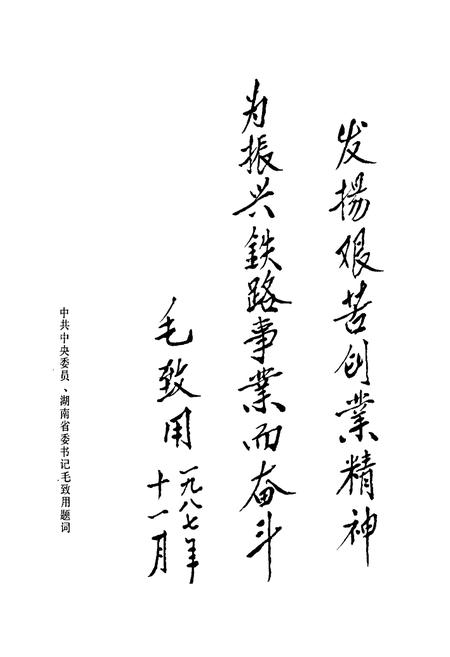 发揚艰苦创業精神
为振兴鉄路事業而奋斗
毛致用
一九八七年
十一月
中共中央委员、湖南省委书记毛致用题词